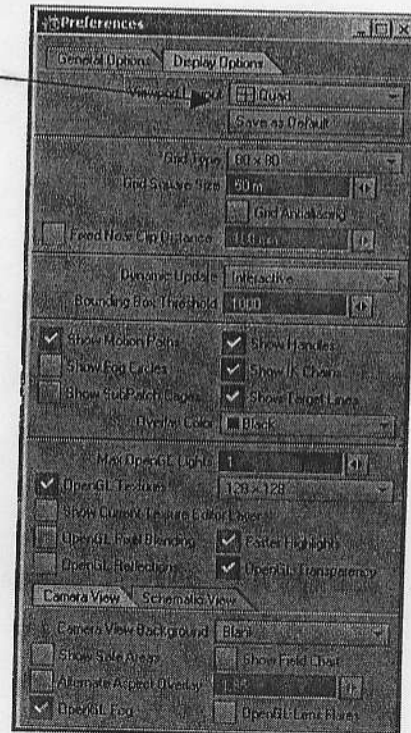 Preferences
General Options Display Options
Viewport Layout Quad
Save as Default
Grid Type 80 x 80
Grid Square Size 60 m
Grid Antialiasing
Fixed Near Clip Distance
Dynamic Update Interactive
Bounding Box Threshold 1000
Show Motion Paths Show Handles
Show Fog Circles Show IK Chains
Show SubPatch Cages Show Target Lines
Overlay Color Black
Max OpenGL Lights 1
OpenGL Textures 128 x 128
Show Current Texture Editor Layer
OpenGL Pixel Blending Faster Highlights
OpenGL Reflections OpenGL Transparency
Camera View Schematic View
Camera View Background Blank
Show Safe Areas Show Field Chart
Alternate Aspect Overlay
OpenGL Fog OpenGL Lens Flares